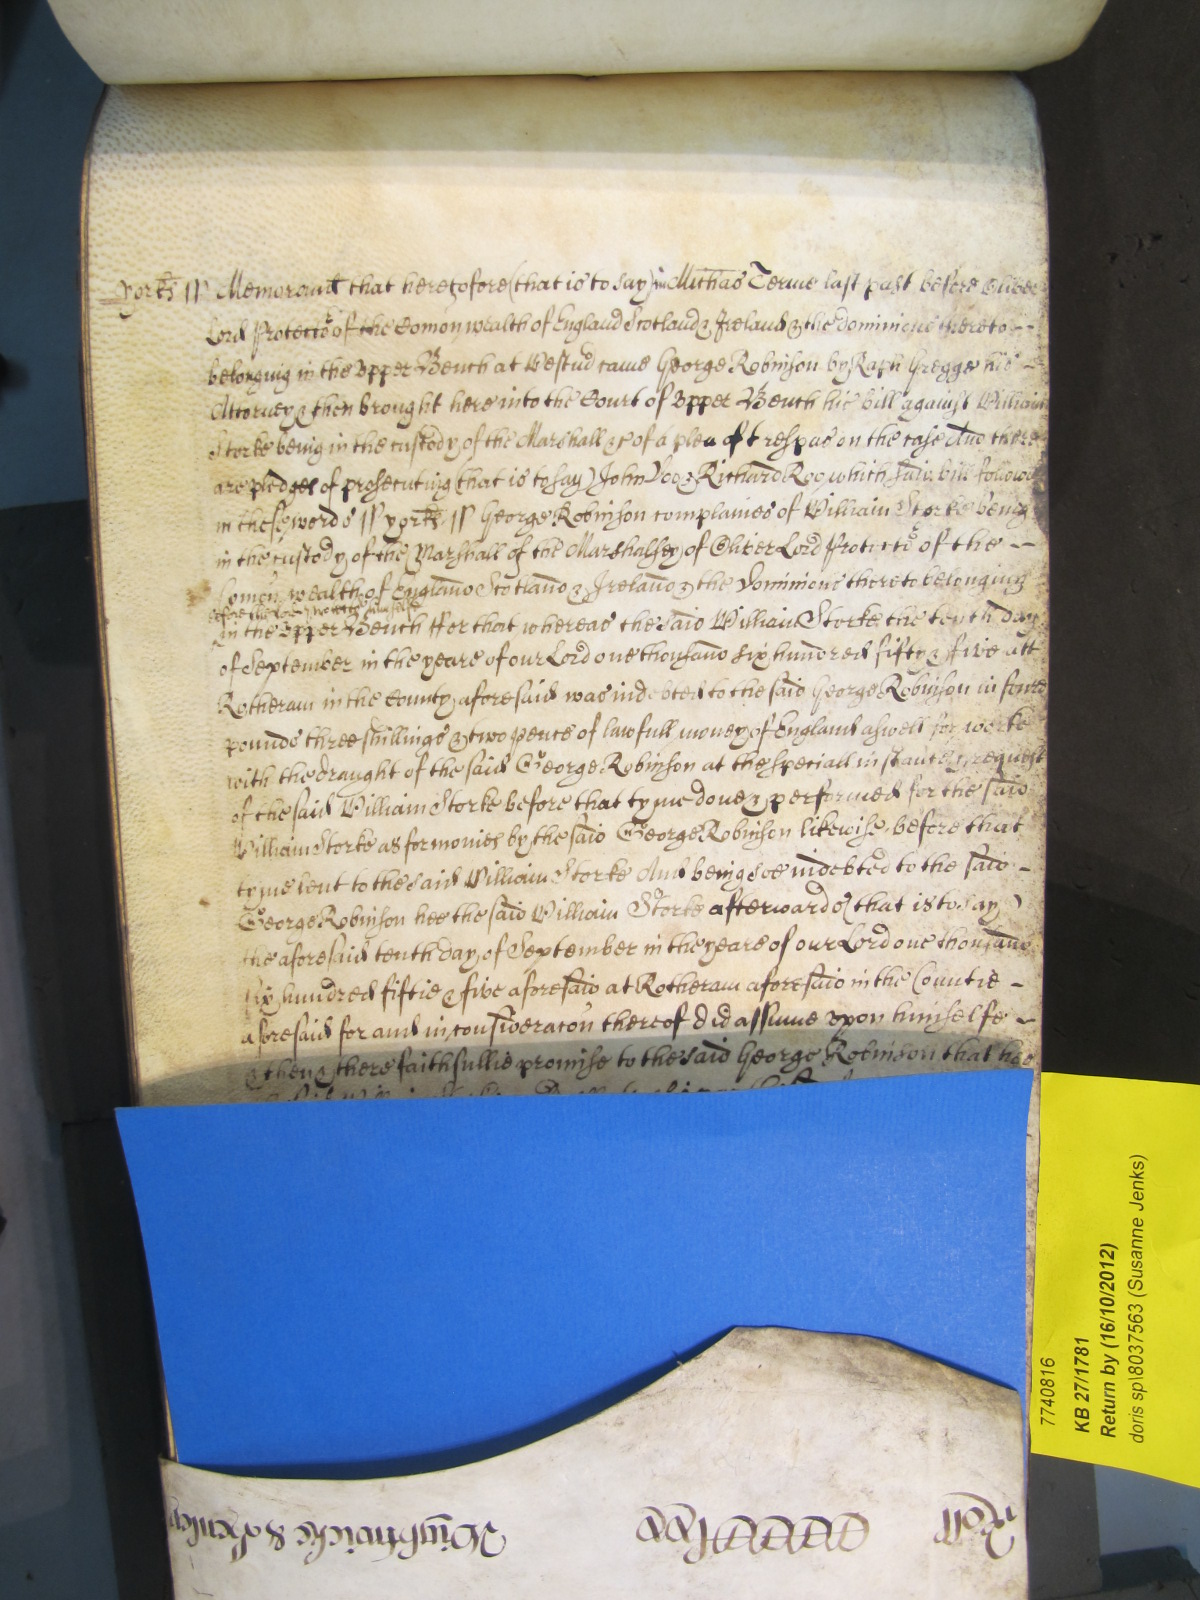 yorks ss Memorand that heretofore (that is to say) in Michas Terme last past before Oliver
Lord Protector of the Comonwealth of England Scotland & Ireland & the dominions thereto
belonging in the Upper Bench at Westm came George Robinson by Raph Gregge his
Attorney & then brought here into the Court of Upper Bench his bill against William
Storke being in the custody of the Marshall &c of a plea of trespas on the case And there
are pledges of prosecuting (that is to say) John Doo & Richard Roo which said bill followes
in these words ss yorks ss George Robinson complaines of William Storke being
in the custody of the Marshall of the Marshalsey of Oliver Lord Protector of the
Comon wealth of England Scotland & Ireland & the Dominions thereto belonging
before the Lord Protector himselfe
in the Upper Bench ffor that whereas the said William Storke the tenth day
of September in the yeare of our Lord one thousand six hundred fifty & five att
Rotheram in the County aforesaid was indebted to the said George Robinson in foure
pounds three shillings & two pence of lawfull money of England aswell for worke
with the draught of the said George Robinson at the speciall instance & request
of the said William Storke before that tyme done & performed for the said
William Storke as for monies by the said George Robinson likewise before that
tyme lent to the said William Storke And being soe indebted to the said
George Robinson hee the said William Storke afterwards (that is to say)
the aforesaid tenth day of September in the yeare of our Lord one thousand
six hundred fiftie & five aforesaid at Rotheram aforesaid in the Countie
aforesaid for and in consideracon thereof did assume upon himselfe
& then & there faithfullie promise to the said George Robinson that hee
Roll
7740816
KB 27/1781
Return by (16/10/2012)
doris sp\8037563 (Susanne Jenks)